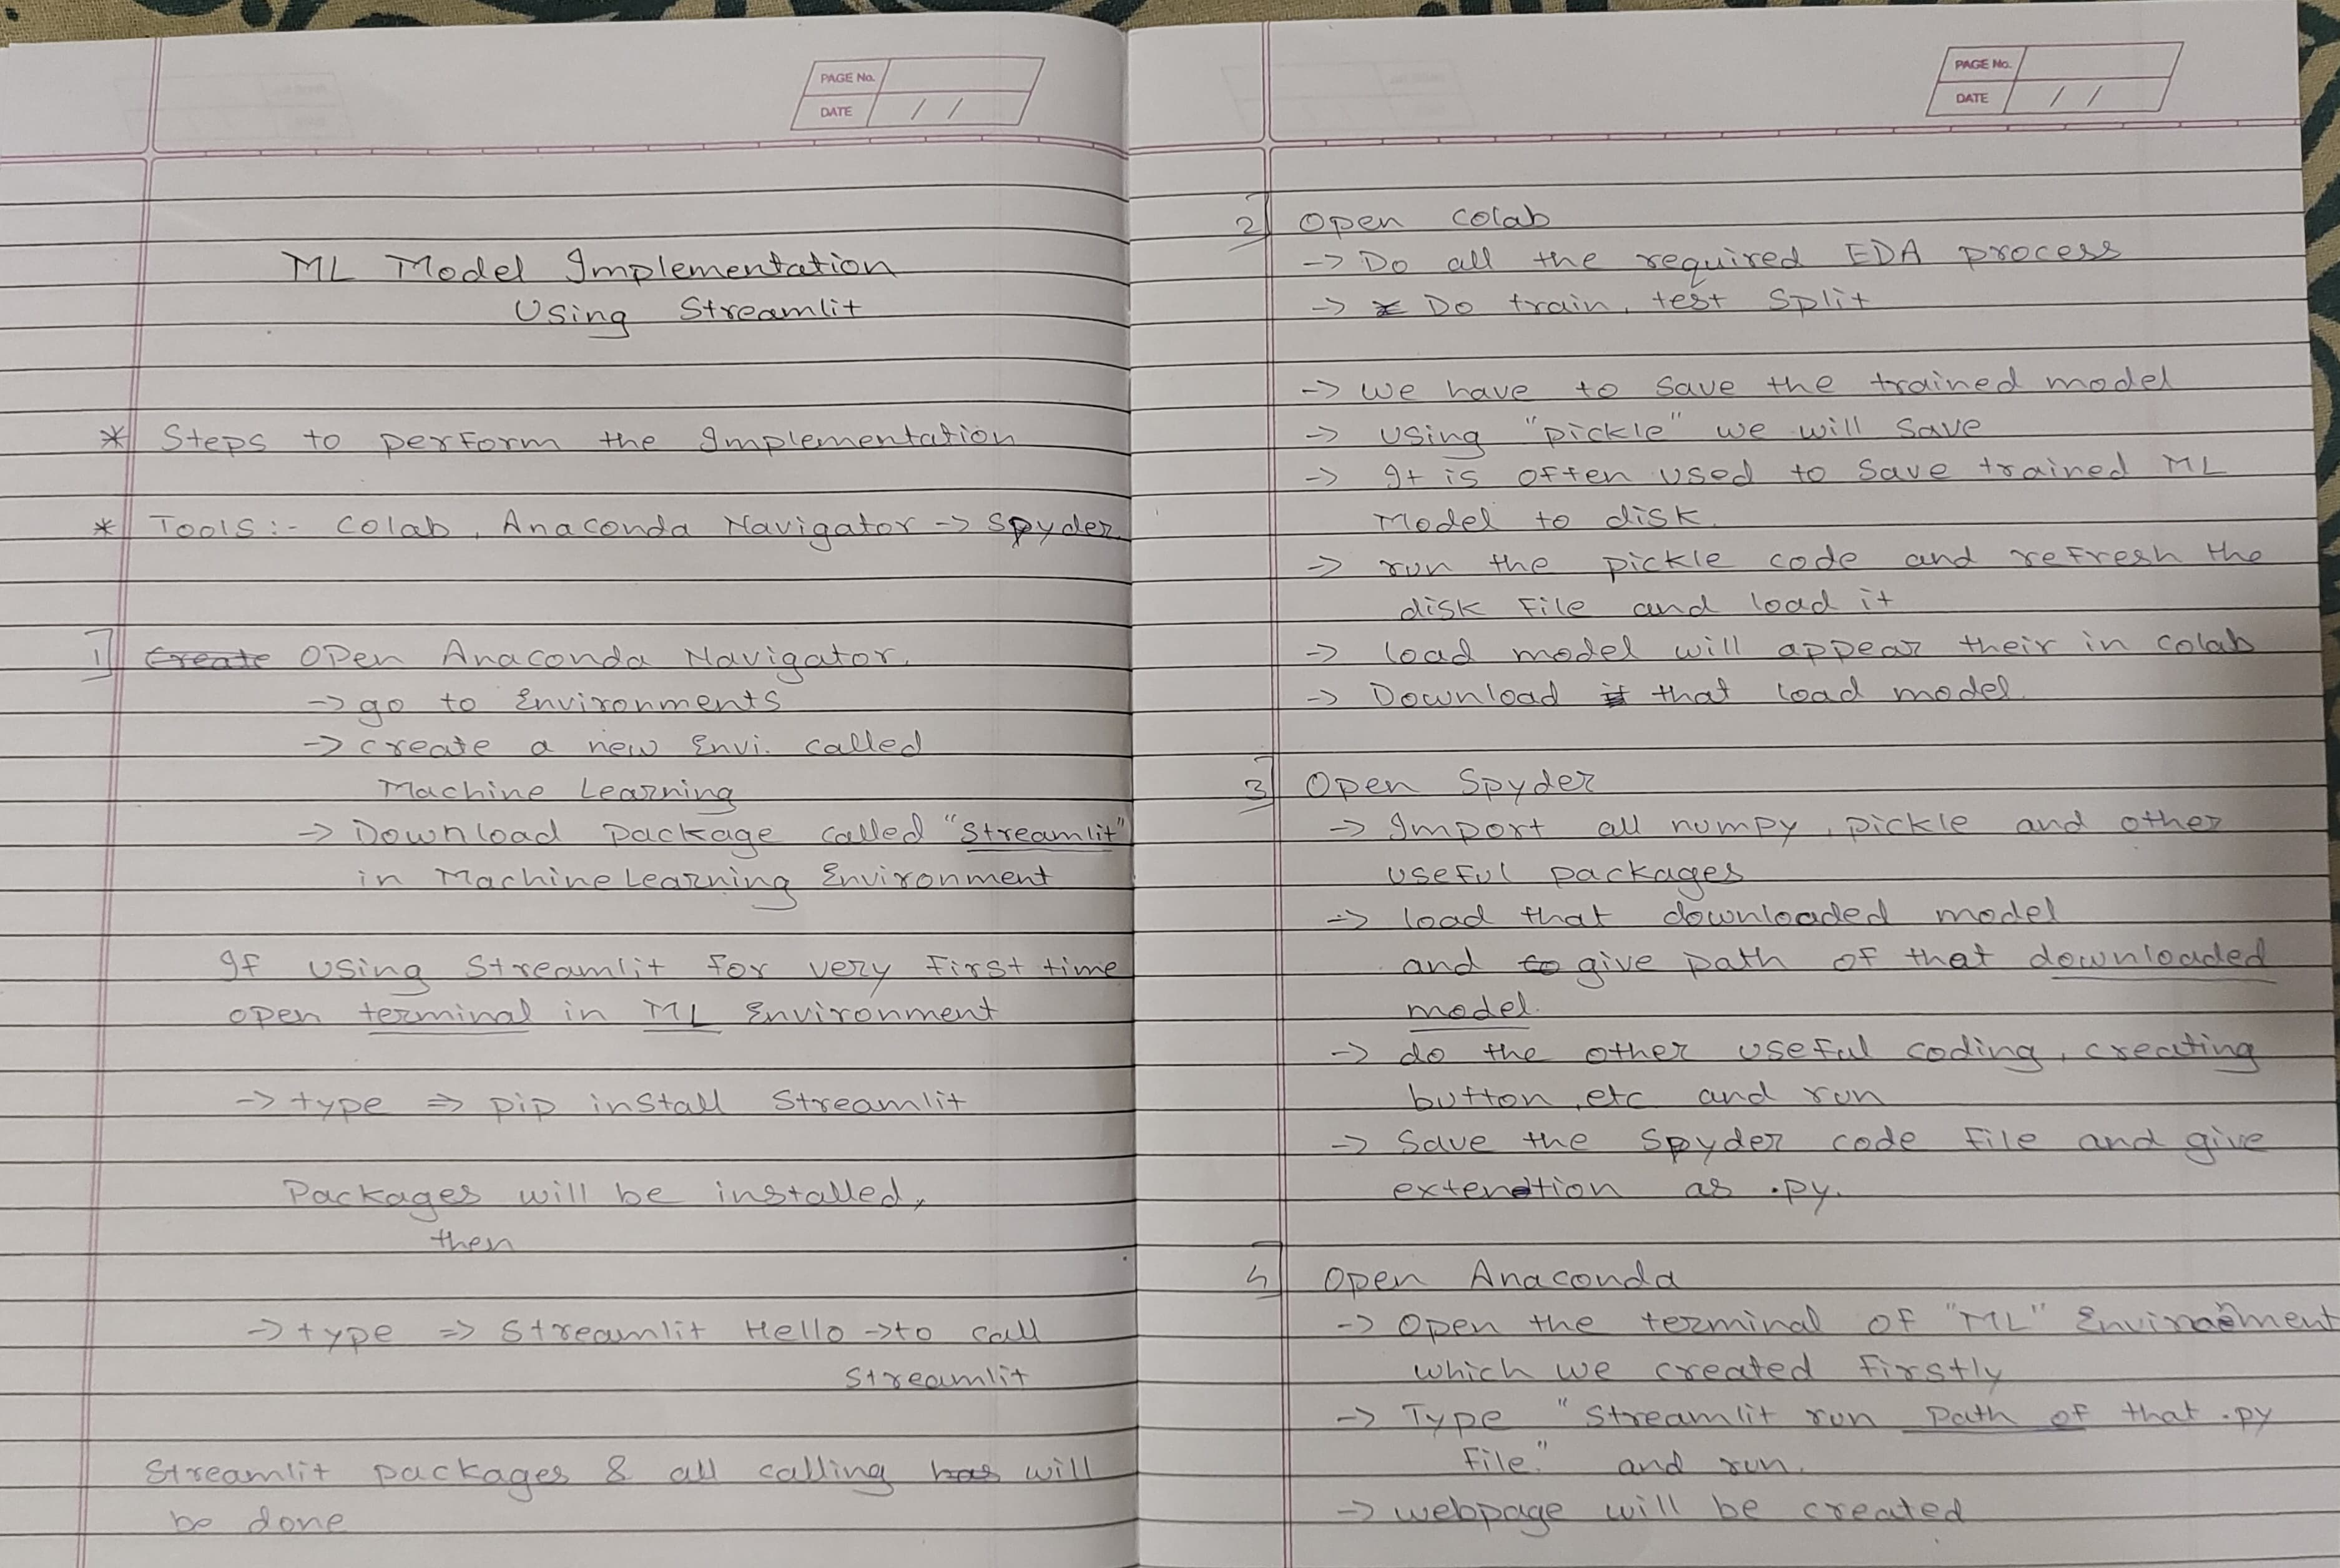 PAGE No.
DATE / /
ML Model Implementation
Using Streamlit
* Steps to perform the Implementation
* Tools :- Colab, Anaconda Navigator -> Spyder
1] Create Open Anaconda Navigator.
-> go to Environments
-> create a new Envi. called
Machine Learning
-> Download package called "Streamlit"
in Machine Learning Environment
If using Streamlit for very first time
open terminal in ML Environment
-> type => pip install Streamlit
Packages will be installed,
then
-> type => Streamlit Hello -> to call
Streamlit
Streamlit packages & all calling has will
be done
PAGE No.
DATE / /
2] Open Colab
-> Do all the required EDA process
-> Do train, test Split
-> we have to save the trained model
-> using "pickle" we will save
-> It is often used to save trained ML
Model to disk.
-> run the pickle code and refresh the
disk file and load it
-> load model will appear their in colab
-> Download it that load model.
3] Open Spyder
-> Import all numpy, pickle and other
useful packages
-> load that downloaded model
and to give path of that downloaded
model.
-> do the other useful coding, creating
button, etc and run
-> Save the Spyder code file and give
extention as .py.
4] Open Anaconda
-> Open the terminal of "ML" Environment
which we created firstly
-> Type "Streamlit run path of that .py
file." and run.
-> webpage will be created